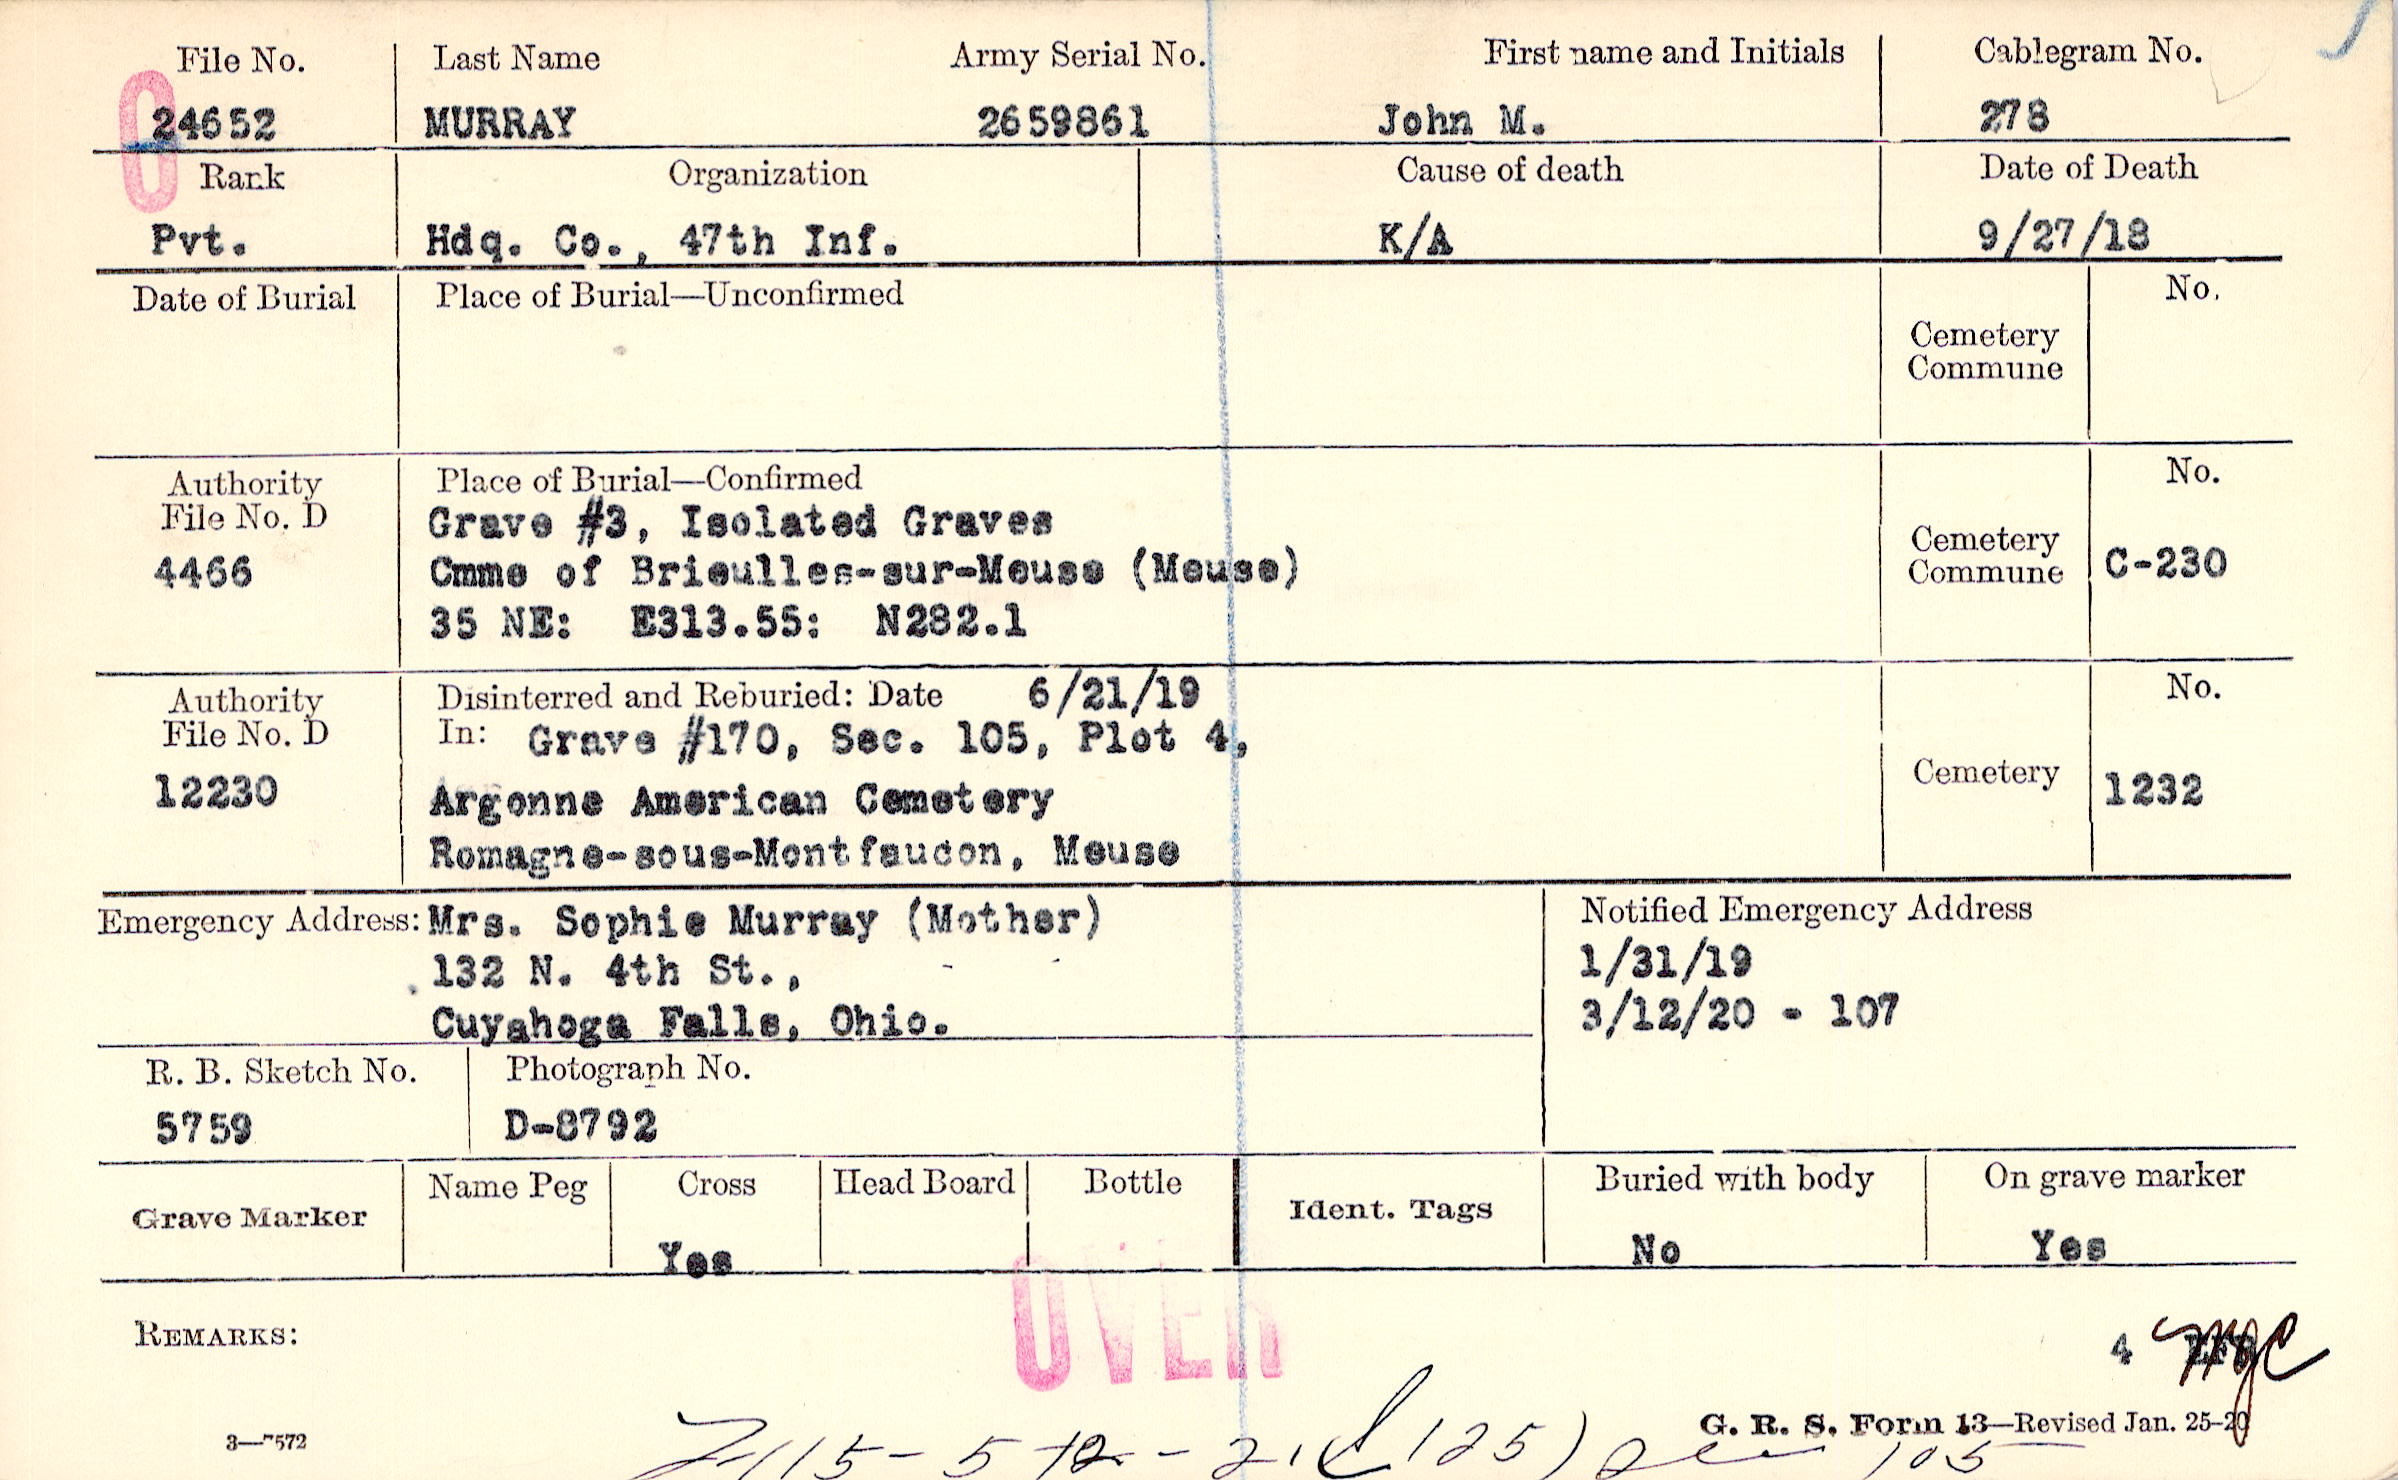 File No. Last Name Army Serial No. First name and Initials Cablegram No.
24652 MURRAY 2659861 John M. 278
Rank Organization Cause of death Date of Death
Pvt. Hdq. Co., 47th Inf. K/A 9/27/18
Date of Burial Place of Burial—Unconfirmed No.
Cemetery
Commune
Authority Place of Burial—Confirmed No.
File No. D Grave #3, Isolated Graves
4466 Cmme of Brieulles-sur-Meuse (Meuse) Cemetery Commune C-230
35 NE: E313.55: N282.1
Authority Disinterred and Reburied: Date 6/21/19 No.
File No. D In: Grave #170, Sec. 105, Plot 4,
12230 Argonne American Cemetery Cemetery 1232
Romagne-sous-Montfaucon, Meuse
Emergency Address: Mrs. Sophie Murray (Mother) Notified Emergency Address
132 N. 4th St., 1/31/19
Cuyahoga Falls, Ohio. 3/12/20 - 107
R. B. Sketch No. Photograph No.
5759 D-8792
Grave Marker Name Peg Cross Head Board Bottle Ident. Tags Buried with body On grave marker
Yes No Yes
OVER
REMARKS: 4
G. R. S. Form 13—Revised Jan. 25-20
3—7572